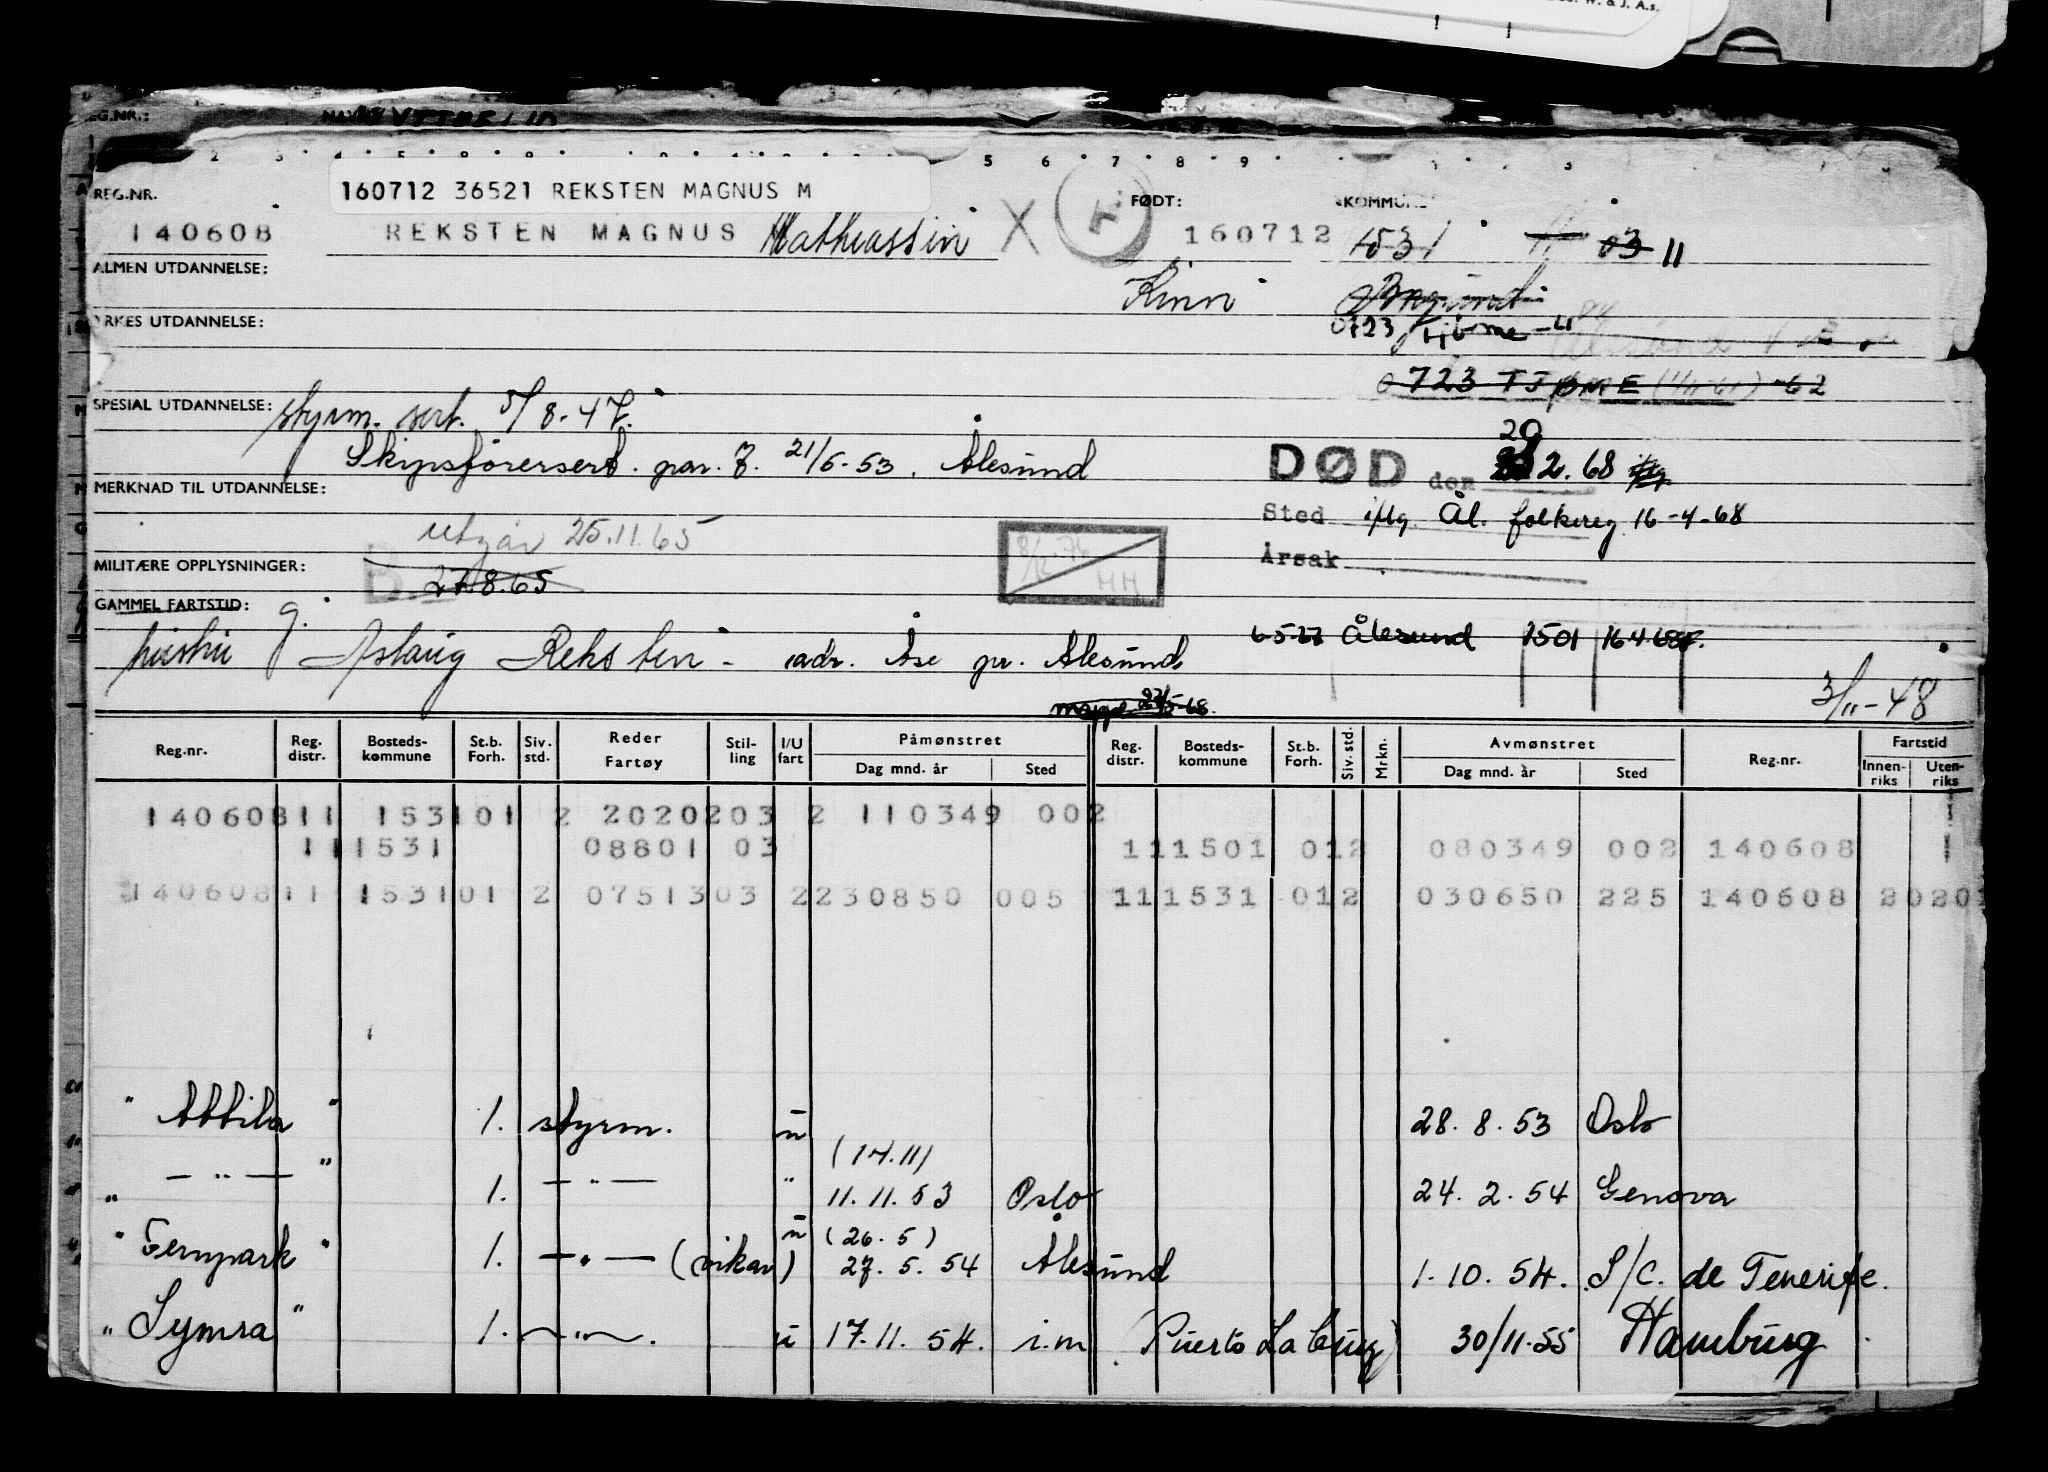 W. & J. A.s.
EG.NR.:
2 3 4 5 6 7 8 9
160712 36521 REKSTEN MAGNUS M
REG.NR. FØDT: KOMMUNE
140608 REKSTEN MAGNUS Mathiassen X 160712 1531 11 03 11
ALMEN UTDANNELSE: Kinn
0723 Tjøme
YRKES UTDANNELSE:
0723 TJØME (1/11-61) -62
SPESIAL UTDANNELSE: styrm. sert. 5/8-47.
Skipsførersert. prøv. 7. 21/5-53, Ålesund
DØD den 20 2.68
MERKNAD TIL UTDANNELSE:
Sted iflg. Ål. folkereg 16-4-68
utgår 25.11.65
Årsak
MILITÆRE OPPLYSNINGER: B 27.8.65
8/12-76 HH
GAMMEL FARTSTID: g.
hustru Aslaug Reksten - adr. Åse pr. Ålesund
Ålesund 1501 16.4.68
3/11-48
mappe
Reg.nr. Reg. distr. Bosteds-kommune St.b. Forh. Siv. std. Reder Fartøy Stil-ling I/U fart Påmønstret Dag mnd. år Sted Reg. distr. Bosteds-kommune St.b. Forh. Siv. std. Mrkn. Avmønstret Dag mnd. år Sted Reg.nr. Fartstid Innen-riks Uten-riks
140608 11 1531 01 2 2020203 2 110349 002
11 1531 08801 03 11 1501 012 080349 002 140608
140608 11 1531 01 2 07513 03 2 230850 005 11 1531 012 030650 225 140608 20201
" Attila " 1. styrm. u 28. 8. 53 Oslo
(17.11)
" — " — " 1. — " — " 11. 11. 53 Oslo 24. 2. 54 Genova
u (26. 5)
" Fernpark " 1. — " — (vikar) 27. 5. 54 Ålesund 1. 10. 54. S/C. de Tenerife.
" Symra " 1. — " —. u 17. 11. 54. i.m. (Puerto La Cruz) 30/11.55 Hamburg